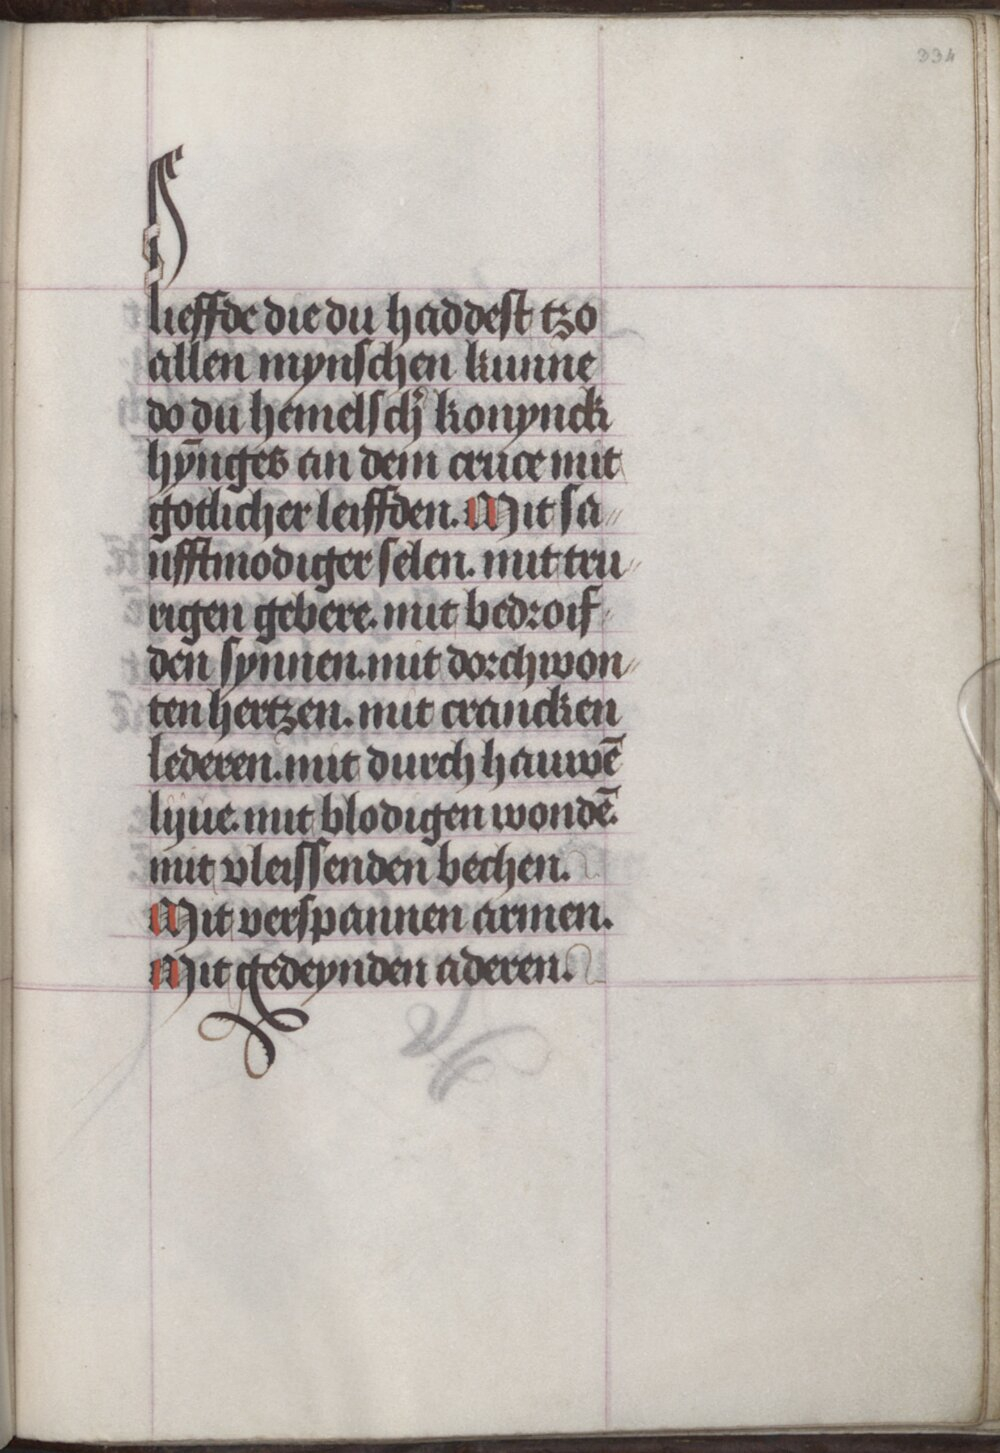 334
lieffde die du haddest tzo
allen mynschen kunne
do du hemelsch' konynck
hȳnges an dem cruce mit
gotlicher leiffden. Mit sa„
nfftmodiger selen. mit tru„
rigen gebere. mit bedroif„
den synnen. mit dorchwon„
ten hertzen. mit crancken
lederen. mit durch hauwē
lijue. mit blodigen wondē.
mit vleissenden bechen.
Mit verspannen armen.
Mit gedeynden aderen.